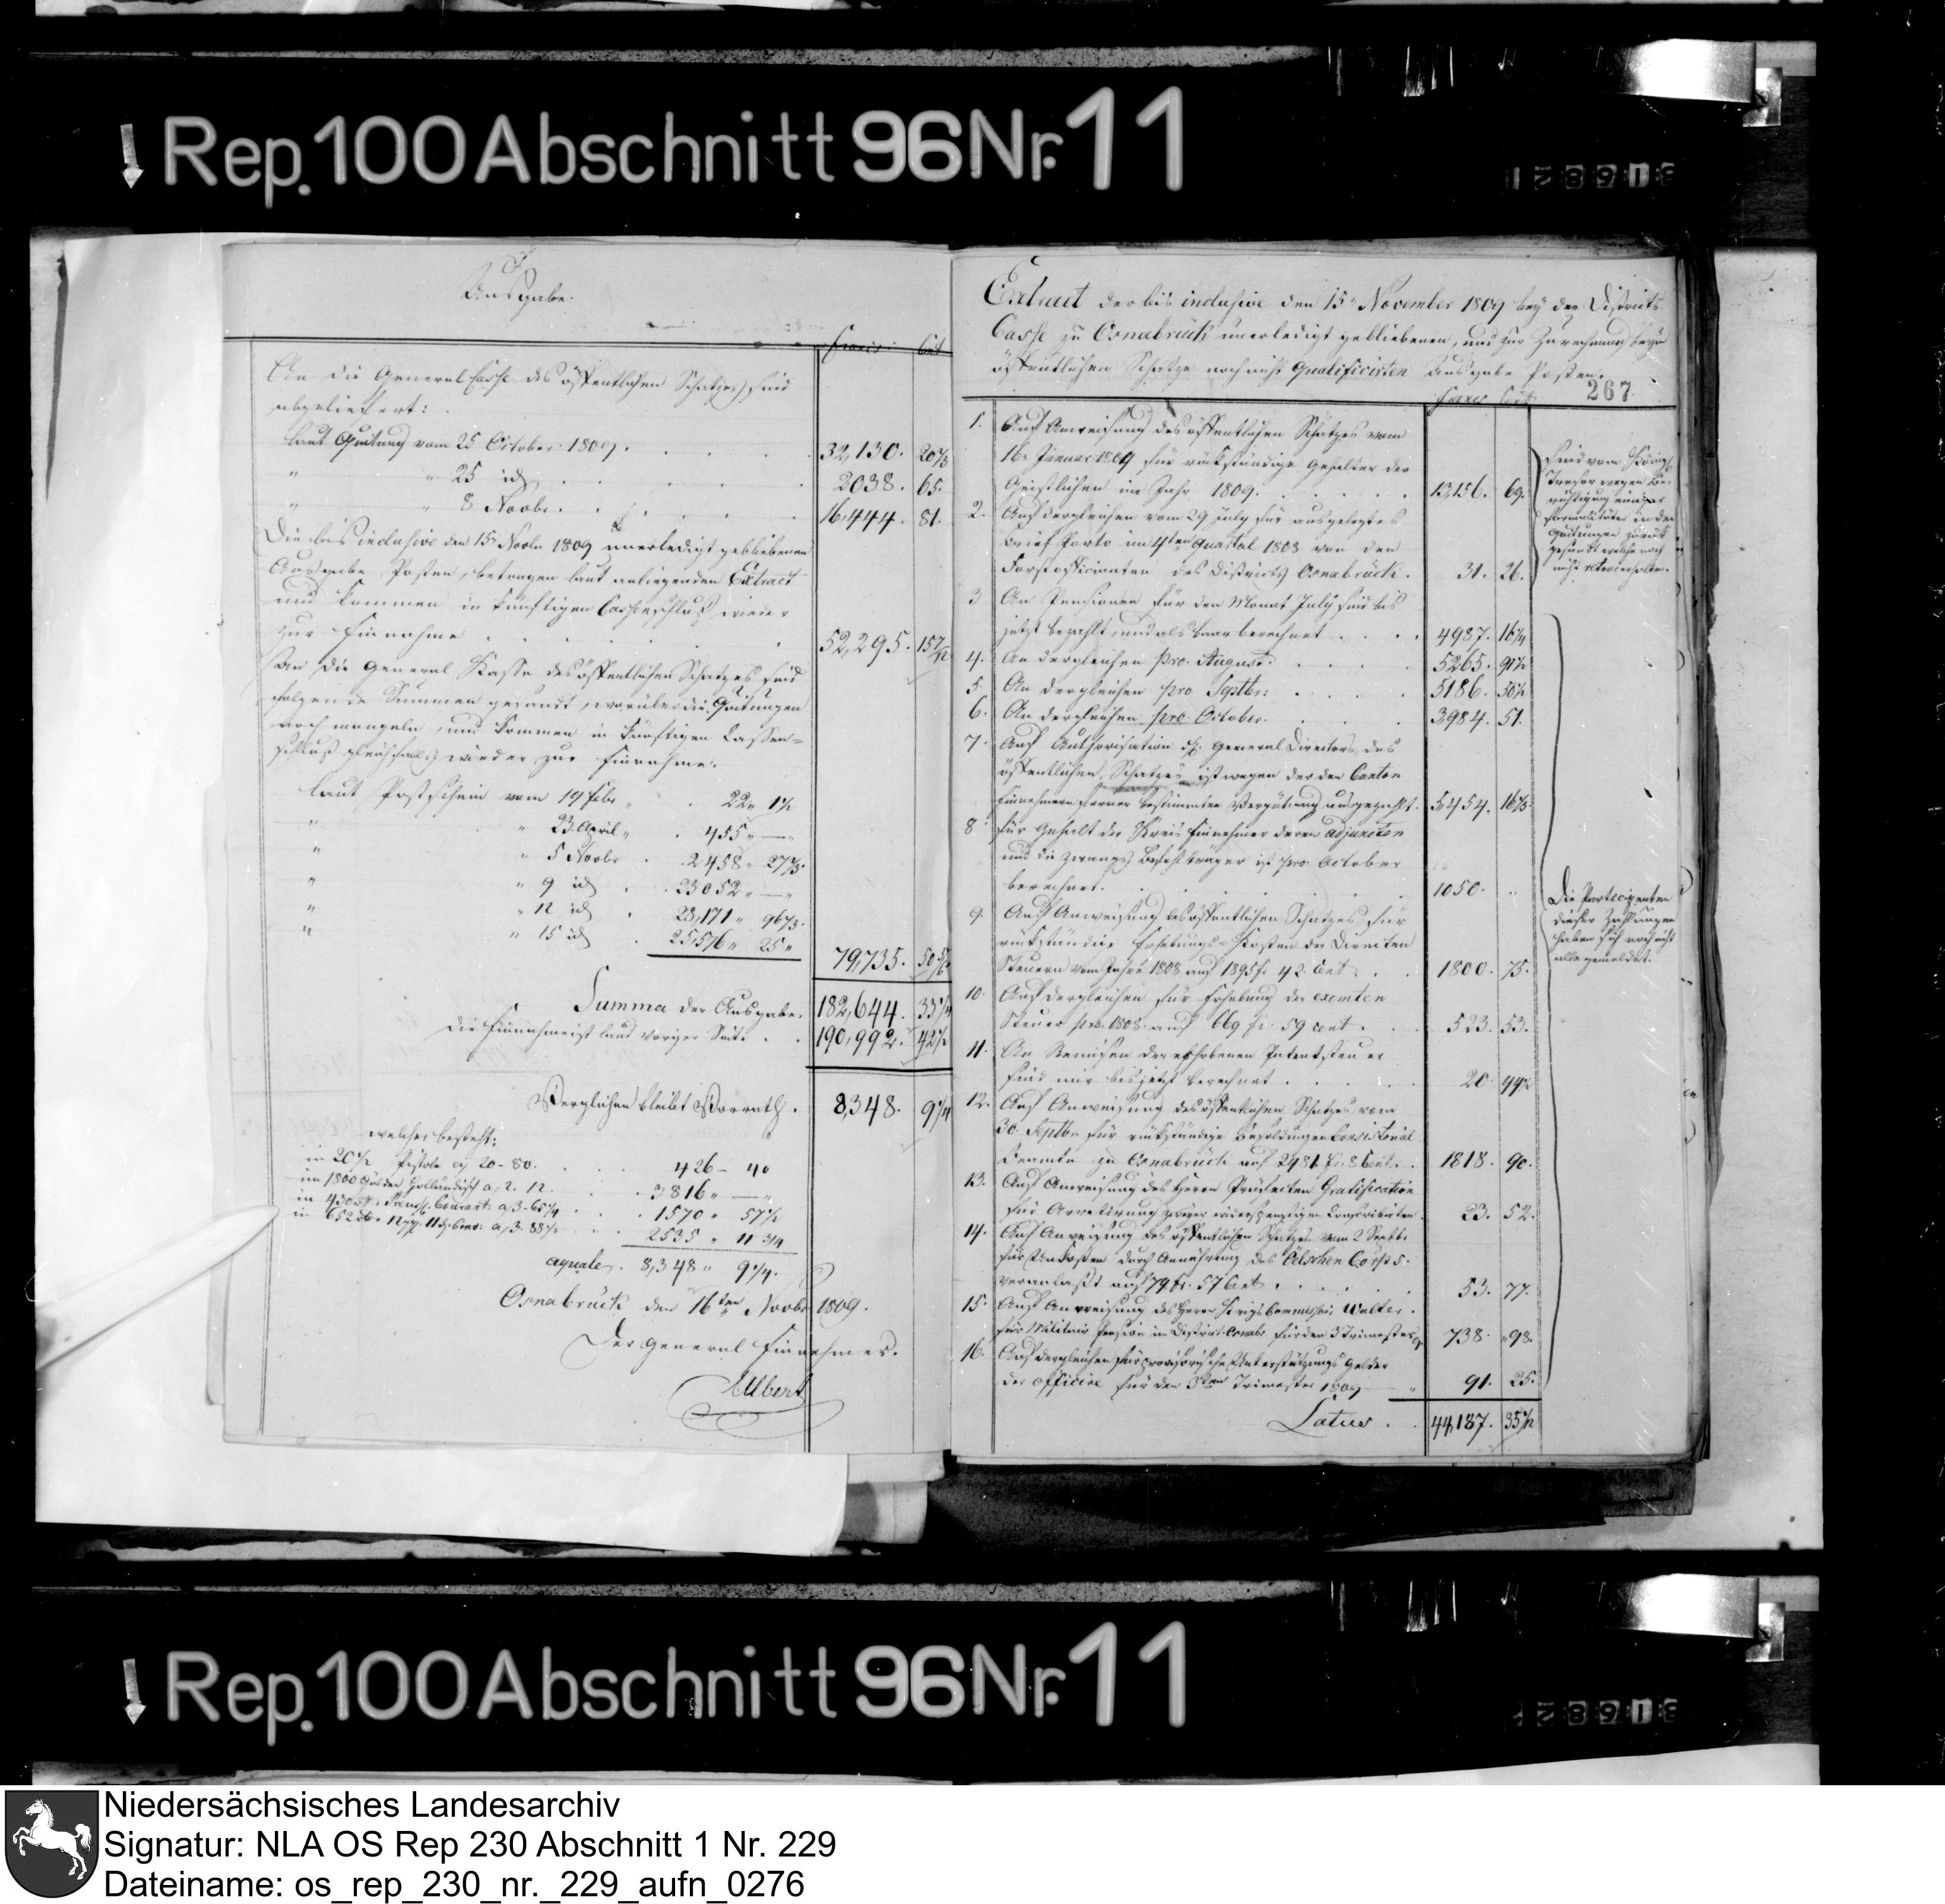 Rep. 100 Abschnitt 96 Nr. 11
Ausgabe.
Francs Cent
An die General Casse des öffentlichen Schatzes sind
abgeliefert:
laut Quitung vom 25 October 1809. 32,130. 20 2/3
" " 25 id 2038. 65.
" " 8 Novbr. 16,444. 81.
Die bis inclusive den 15n Novbr 1809 unerledigt gebliebenen
Ausgabe Posten, betragen laut anliegenden Extract
und kommen in künftigen Cassenschluß wieder
zur Einnahme 52,295. 15 7/12
An die General Kasse des öffentlichen Schatzes sind
folgende Summen gesandt, worüber die Quitungen
noch mangeln, und kommen in künftigen Cassen-
schluß gleichfals wieder zur Einnahme.
laut Postschein vom 19 Febr " 22 " 1 1/2
" " 23 April " 455 " —
" " 5 Novbr 2458 " 27
" " 9 id 23052 " —
" " 12 id 28,171 " 96 2/3
" " 15 id 25,576 " 25 "
79,735. 50 5/6
Summa der Ausgabe. 182,644. 33 1/4
Die Einnahme ist laut voriger Seite 190,992. 42 1/2
Verglichen bleibt Vorrath. 8,348. 9 1/4
welcher besteht:
in 20 1/2 Pistole a, 20-80. 426 — 40
in 1800 Gulden Holländisch a, 2. 12. 3816 " —
in 430 Preuss. Courant: a, 3. 65 1/4 1570 " 57 1/2
in 652 Conv: a, 3. 88 2535 " 11 3/4
aequale 8,348 " 9 1/4.
Osnabrück den 16ten Novbr 1809.
Der General Einnehmer.
Extract der bis inclusive den 15n November 1809 bey der Districts
Casse zu Osnabrück unerledigt gebliebenen, und zur Zurechnung beym
öffentlichen Schatze noch nicht Qualificirten Ausgabe Posten.
267
Francs Cent
1. Auf Anweisung des öffentlichen Schatzes vom
16n Januar 1809 für rückständige Gehalter der
Geistlichen im Jahr 1809. 13,156. 69.
2. Auf dergleichen vom 29 July für ausgelegtes
Brief Porto im 4ten Quartal 1808 von den
Forstofficianten des Districts Osnabrück. 31. 26.
3 An Pensionen für den Monat July sind bis
jetzt bezahlt, und als baar berechnet 4987.
4. An dergleichen pro August. 5265.
5. An dergleichen pro Septbr: 5186.
6. An dergleichen pro October. 3984. 51.
7. Auf Authorisation General Directors des
öffentlichen Schatzes ist wegen der den Canton
Einnehmern ferner bestimmten Vergütung ausgezahlt. 5454. 16 2/3
8. für Gehalt der Kreis Einnehmer deren adjuncten
und die Zwangs Befehlträger ist pro October
berechnet. 1050. "
9. Auf Anweisung des öffentlichen Schatzes für
rückständige Erhebungs-Kosten der Directen
Steuern vom Jahre 1808 auf 1895 f. 42. Cent 1800. 75.
10. Auf dergleichen für Erhebung der exemten
Steuer pro 1808. auf 669 fr. 59 cent. 523. 53.
11. An Remisen der erhobenen Patentsteuer
sind mir bis jetzt berechnet 20.
12. Auf Anweisung des öffentlichen Schatzes vom
30 Septbr für rückständige Besoldungen Consistorial
Beamte zu Osnabrück auf 2481 fr. 8 Cent. 1818. 90.
13. Auf Anweisung des Herrn Präfecten Gratification
für Arretirung zweyer widerspenstigen Conscribirten. 23. 52.
14. Auf Anweisung des öffentlichen Schatzes vom 2 Septbr
für Unkosten durch Annährung des Oelschen Corps.
veranlaßt auf 74 fr. 57 Cent 53. 77.
15. Auf Anweisung des Herrn Krigs Commissair Walter.
für Militair Pension im District Osnabr für den 3 Trimester 738. 98.
16. Auf dergleichen für provisorische Unterstützungs Gelder
der officire für den 3ten Trimester 1809 91. 25.
Latus 44,187.
Sind vom Königl
Tresor wegen Be-
richtigung einiger
Formalitäten in den
Quitungen zurück
gesandt welche noch
nicht
Die Participenten
dieser Zahlungen
haben sich noch nicht
alle gemeldet.
Rep. 100 Abschnitt 96 Nr. 11
Niedersächsisches Landesarchiv
Signatur: NLA OS Rep 230 Abschnitt 1 Nr. 229
Dateiname: os_rep_230_nr._229_aufn_0276